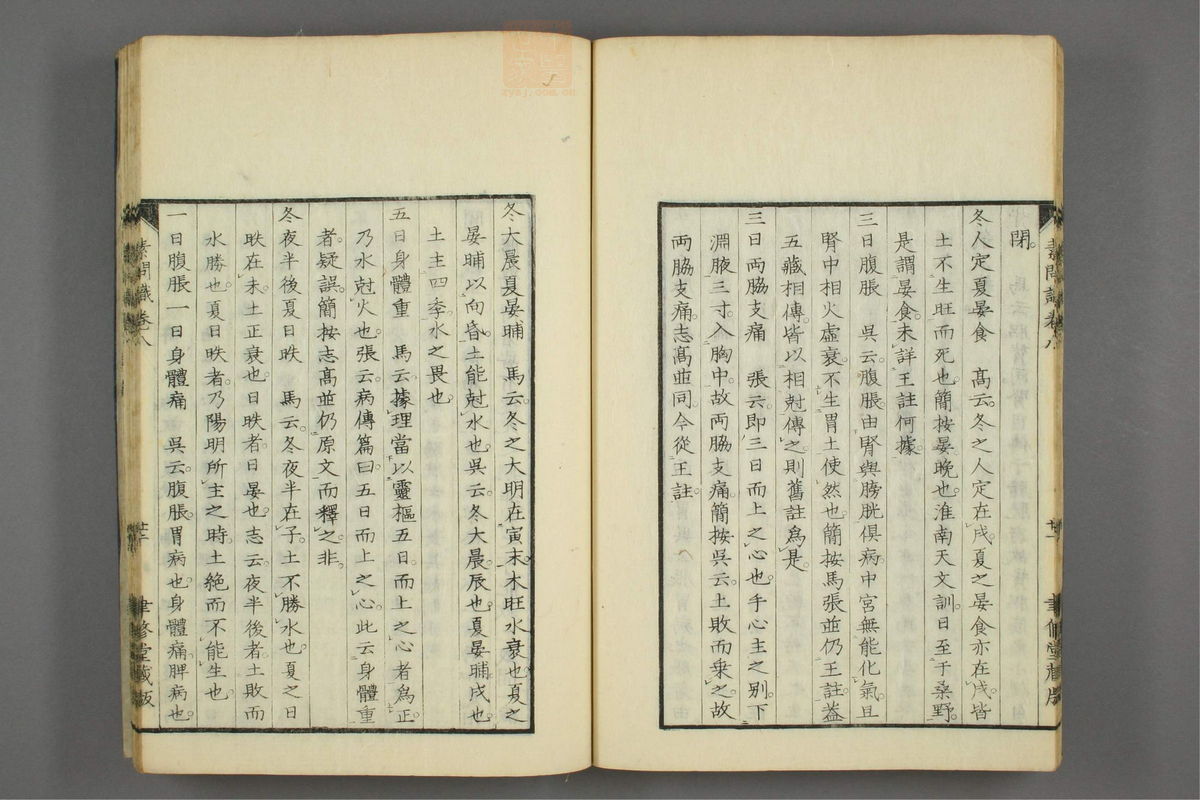 閉。
冬人定夏晏食　高云。冬之人定在戌。夏之晏食亦在戌。皆
土不生旺而死也。簡按晏晚也。淮南天文訓。日至于桑野。
是謂晏食。未詳王註何據。
三日腹脹　吳云。腹脹。由腎與膀胱俱病。中宮無能化氣。且
腎中相火虛衰。不生胃土使然也。簡按馬張並仍王註。蓋
五藏相傳。皆以相尅傳之。則舊註爲是。
三日兩脇支痛　張云。即三日而上之心也。手心主之別。下
淵腋三寸。入胸中。故兩脇支痛。簡按吳云。土敗而乘之。故
兩脇支痛。志高並同。今從王註。
素問識卷八
廿一
聿修堂藏版
冬大晨夏晏晡　馬云。冬之大明在寅末。木旺水衰也。夏之
晏晡以向昏。土能尅水也。吳云。冬大晨。辰也。夏晏晡。戌也。
土主四季。水之畏也。
五日身體重　馬云。據理當以靈樞五日而上之心者爲正。
乃水尅火也。張云。病傳篇曰。五日而上之心。此云身體重
者。疑誤。簡按志高並仍原文而釋之。非。
冬夜半後夏日昳　馬云。冬夜半在子。土不勝水也。夏之日
昳在未。土正衰也。日昳者。日晏也。志云。夜半後者。土敗而
水勝也。夏日昳者。乃陽明所主之時。土絶而不能生也。
一日腹脹一日身體痛　吳云。腹脹。胃病也。身體痛。脾病也。
素問識卷八
廿二
聿修堂藏版